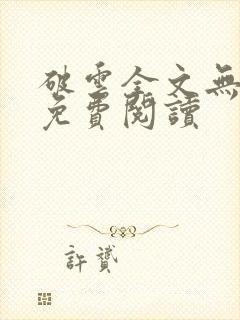 破雲全文無
免費閱讀
許贇